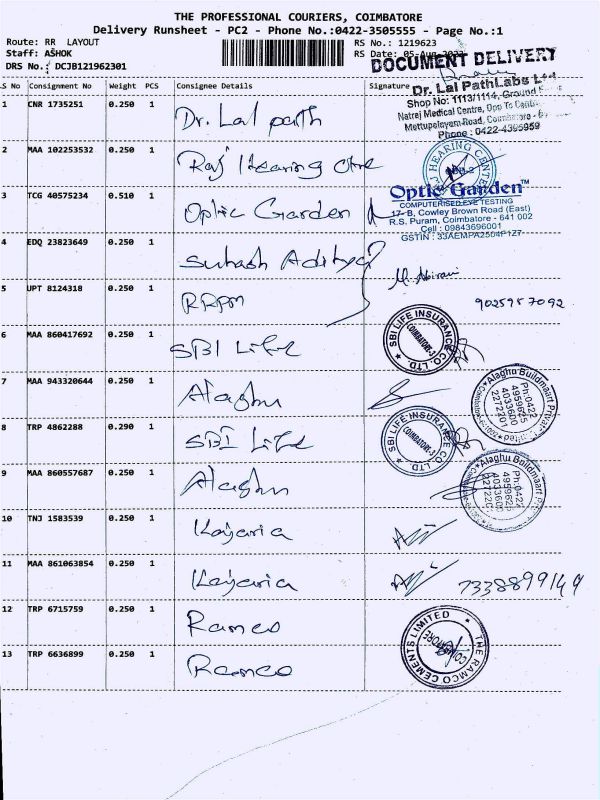 THE PROFESSIONAL COURIERS, COIMBATORE
Delivery Runsheet - PC2 - Phone No.:0422-3505555 - Page No.:1
Route: RR LAYOUT RS No.: 1219623
Staff: ASHOK RS Date: 05-Aug-2023
DRS No.: DCJB121962301
DOCUMENT DELIVERY
S No Consignment No Weight PCS Consignee Details Signature
Dr. Lal PathLabs Ltd
Shop No: 1113/1114, Ground
Natraj Medical Centre, Opp To
Mettupalayam Road, Coimbatore -
Phone : 0422-4395959
1 CNR 1735251 0.250 1 Dr. Lal path
2 MAA 102253532 0.250 1 Raj Hearing
HEARING CENTRE
3 TCG 40575234 0.510 1 Optic Garden
Optic Garden™
COMPUTERISED EYE TESTING
17-B, Cowley Brown Road (East)
R.S. Puram, Coimbatore - 641 002
Cell : 09843696001
GSTIN : 33AEMPA2504F1Z7
4 EDQ 23823649 0.250 1 Subash Aditya
M. Abirami
5 UPT 8124318 0.250 1 RRpm
9025957092
6 MAA 860417692 0.250 1 SBI Life
SBI LIFE INSURANCE CO. LTD.
COIMBATORE-3
7 MAA 943320644 0.250 1 Alaghu
Alaghu Buildmaart Private Limited
Ph:0422
4959625
4033600
2272701
8 TRP 4862288 0.290 1 SBI Life
SBI LIFE INSURANCE CO. LTD.
COIMBATORE-3
9 MAA 860557687 0.250 1 Alaghu
Alaghu Buildmaart Private Limited
Ph:0422
4959625
4033600
10 TNJ 1583539 0.250 1 Kajaria
11 MAA 861063854 0.250 1 Kajaria
7338899149
12 TRP 6715759 0.250 1 Ramco
THE RAMCO CEMENTS LIMITED
13 TRP 6636899 0.250 1 Ramco